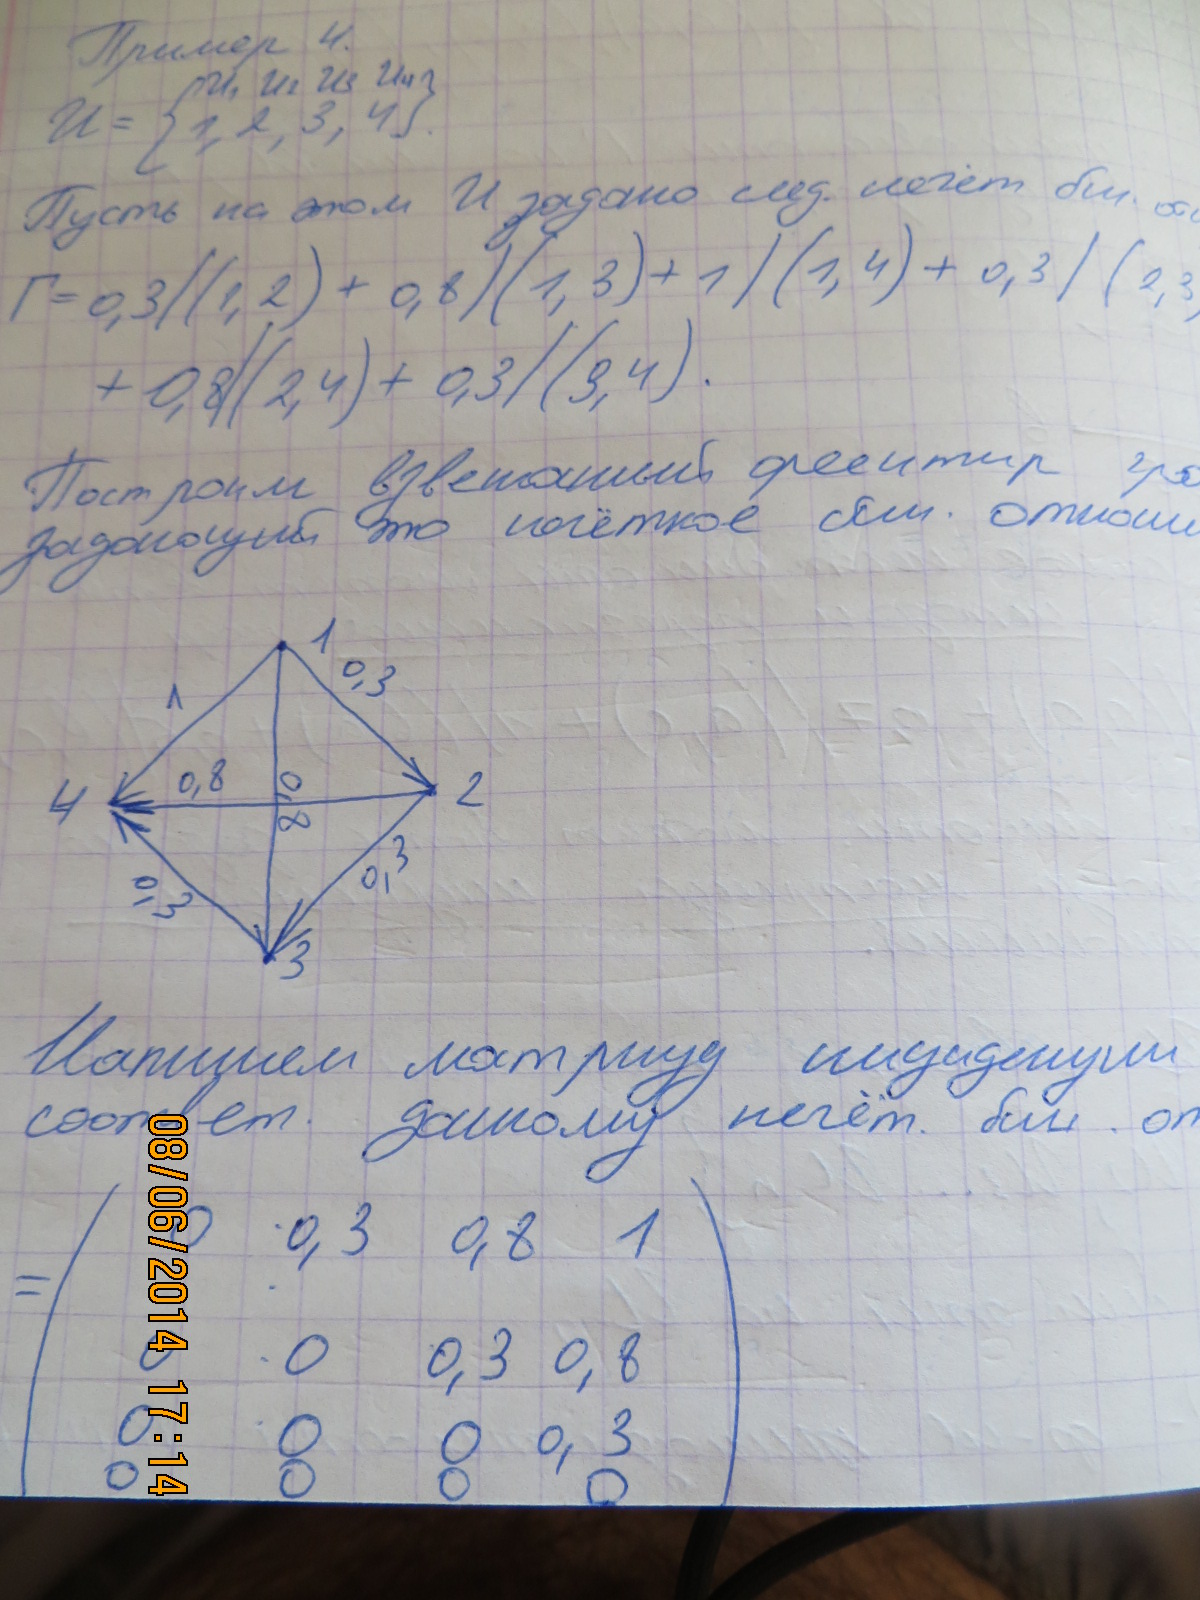 Пример 4.
u₁ u₂ u₃ u₄
U = {1, 2, 3, 4}.
Пусть на этом U задано след. нечёт бин.
Г = 0,3/(1,2) + 0,8/(1,3) + 1/(1,4) + 0,3/(2,3)
+ 0,8/(2,4) + 0,3/(3,4).
Построим взвешанный ориентир
задающий это нечёткое бин. отнош
1
0,3
1
0,8
0,8
4
2
0,3
0,3
3
Напишем матрицу
соответ. данному нечёт. бин. от
= ( 0 0,3 0,8 1
0 0 0,3 0,8
0 0 0 0,3
0 0 0 0 )
08/06/2014 17:14